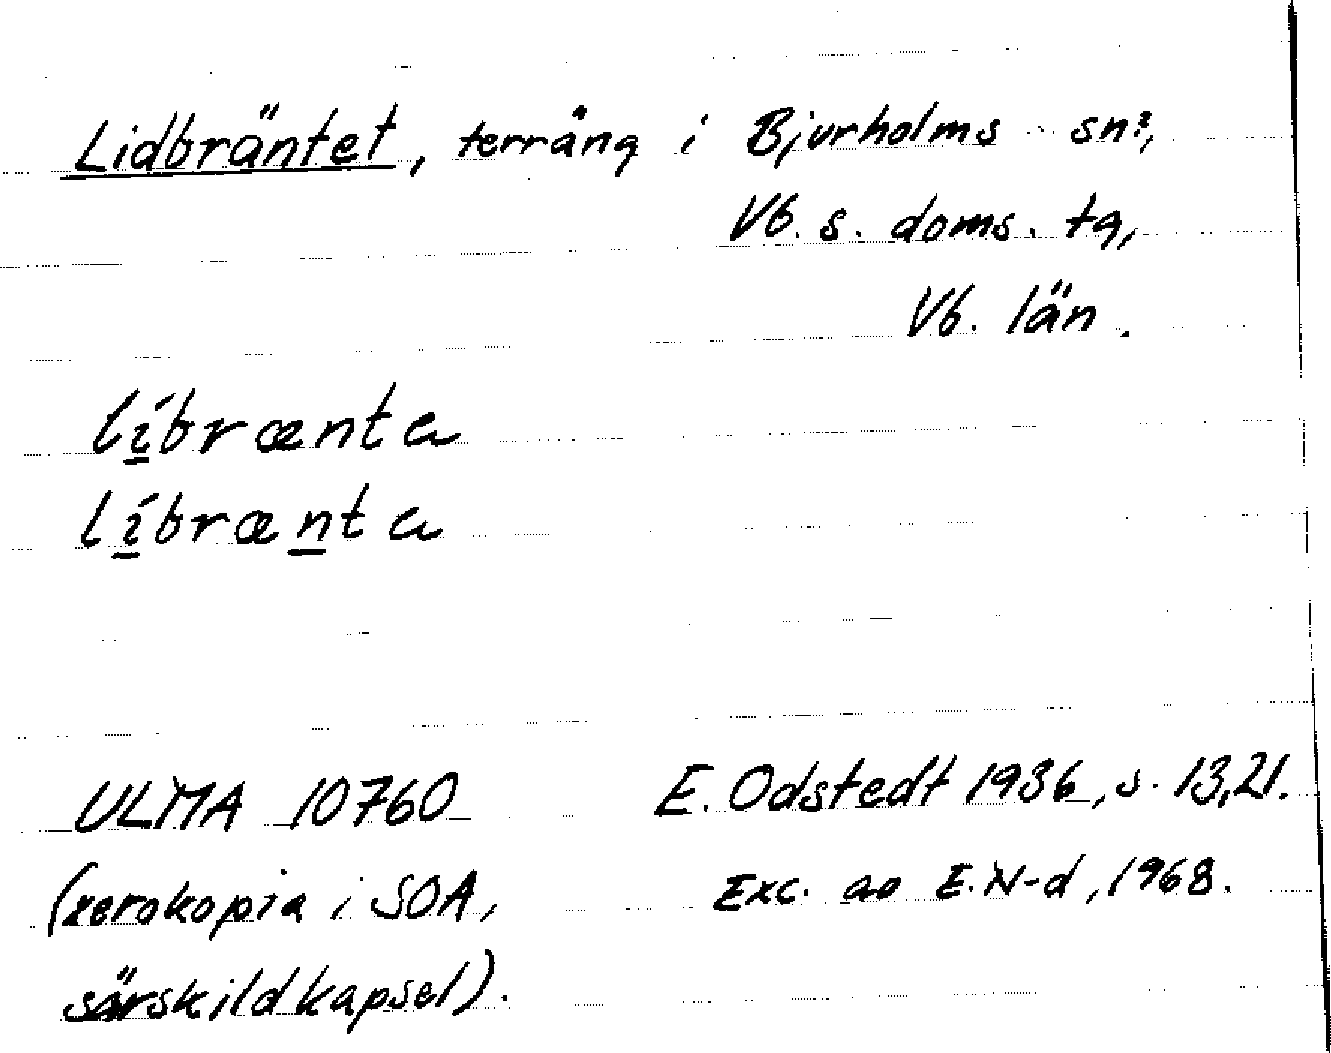 Lidbräntet, terräng i Bjurholms sn,
Vb. s. doms. tg,
Vb. län.
lí̱brænta
lí̱bræṉta
ULMA 10760 E. Odstedt 1936, s. 13,21.
(xerokopia i SOA, Exc. av E. N-d, 1968.
särskild kapsel).